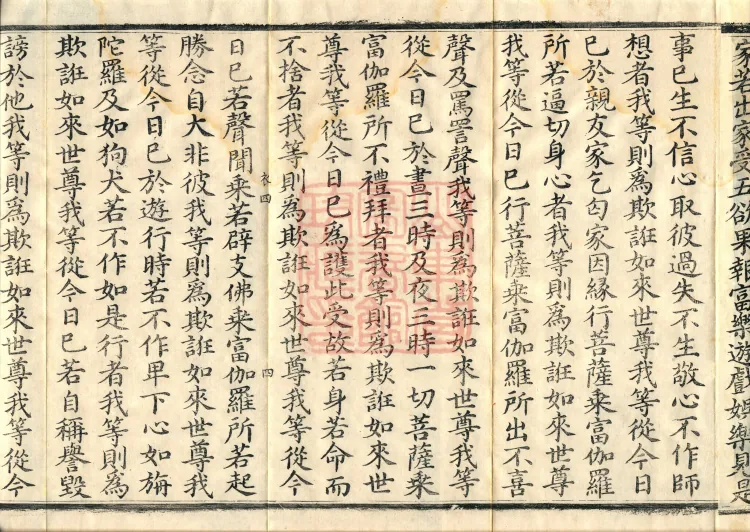 家若出家受五欲果報富樂遊戲娛樂見是
事已生不信心取彼過失不生敬心不作師
想者我等則為欺誑如來世尊我等從今日
已於親友家乞匄家因緣行菩薩乗富伽羅
所若逼切身心者我等則為欺誑如來世尊
我等從今日已行菩薩乗富伽羅所出不喜
聲及罵詈聲我等則為欺誑如來世尊我等
從今日已於晝三時及夜三時一切菩薩乗
富伽羅所不禮拜者我等則為欺誑如來世
尊我等從今日已為護此受故若身若命而
不捨者我等則為欺誑如來世尊我等從今
衣四
四
日已若聲聞乗若辟支佛乗富伽羅所若起
勝念自大非彼我等則為欺誑如來世尊我
等從今日已於遊行時若不作卑下心如旃
陀羅及如狗犬若不作如是行者我等則為
欺誑如來世尊我等從今日已若自稱譽毀
謗於他我等則為欺誑如來世尊我等從今